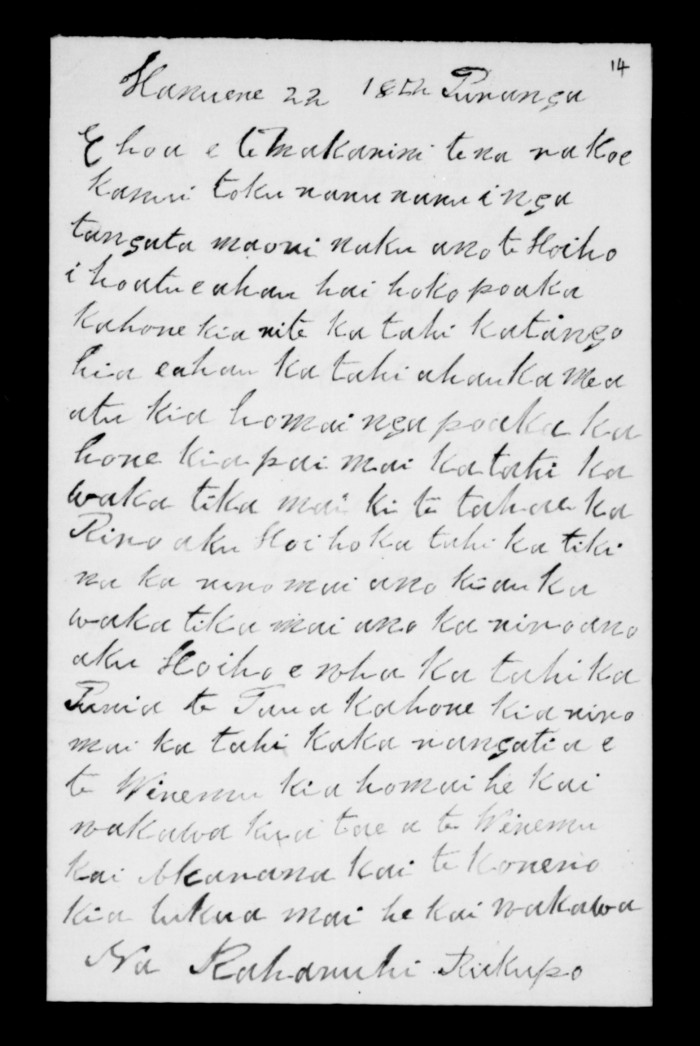 14
Hanuere 22 1852 Turanga
E hoa e te Makarini tena ra koe
kanui toku nanu nanu i nga
tangata maori naku ano te Hoiho
i hoatu e ahau hai hoko poaka
kahore kia rite ka tahi ka tango
hia e ahau ka tahi ahau ka mea
atu kia homai nga poaka ka
hore kia pai mai ka tahi ka
waka tika mai ki te tahae ka
Riro aku Hoiho ka tahi ka tiki
na ka riro mai ano kiau ka
waka tika mai ano ka riro ano
aku Hoiho e wha ka tahi ka
Turia te Taua kahore kia riro
mai ka tahi kaka rangatia e
te Wiremu kia homai he kai
wakawa kua tae a te Wiremu
kai Akarana kai te korero
kia tukua mai he kai wakawa
Na Raharuhi Rukupo